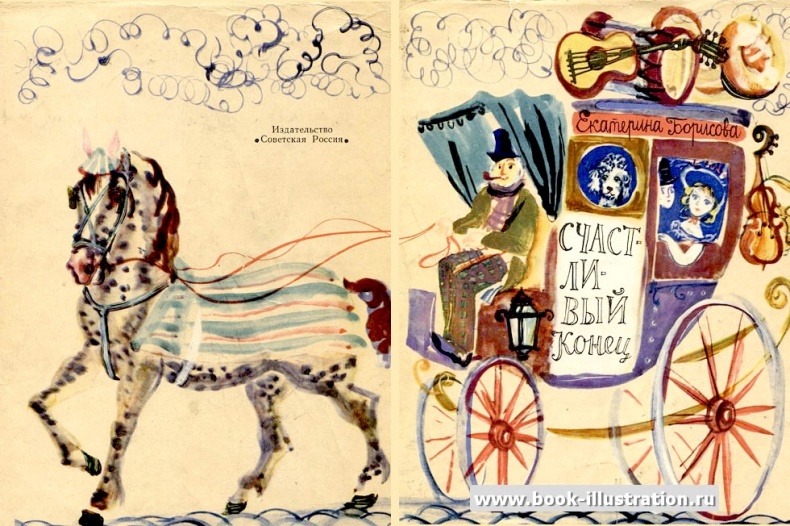 Издательство
• Советская Россия •
Екатерина Борисова
СЧАСТ-
ЛИ-
ВЫЙ
Конец
www.book-illustration.ru